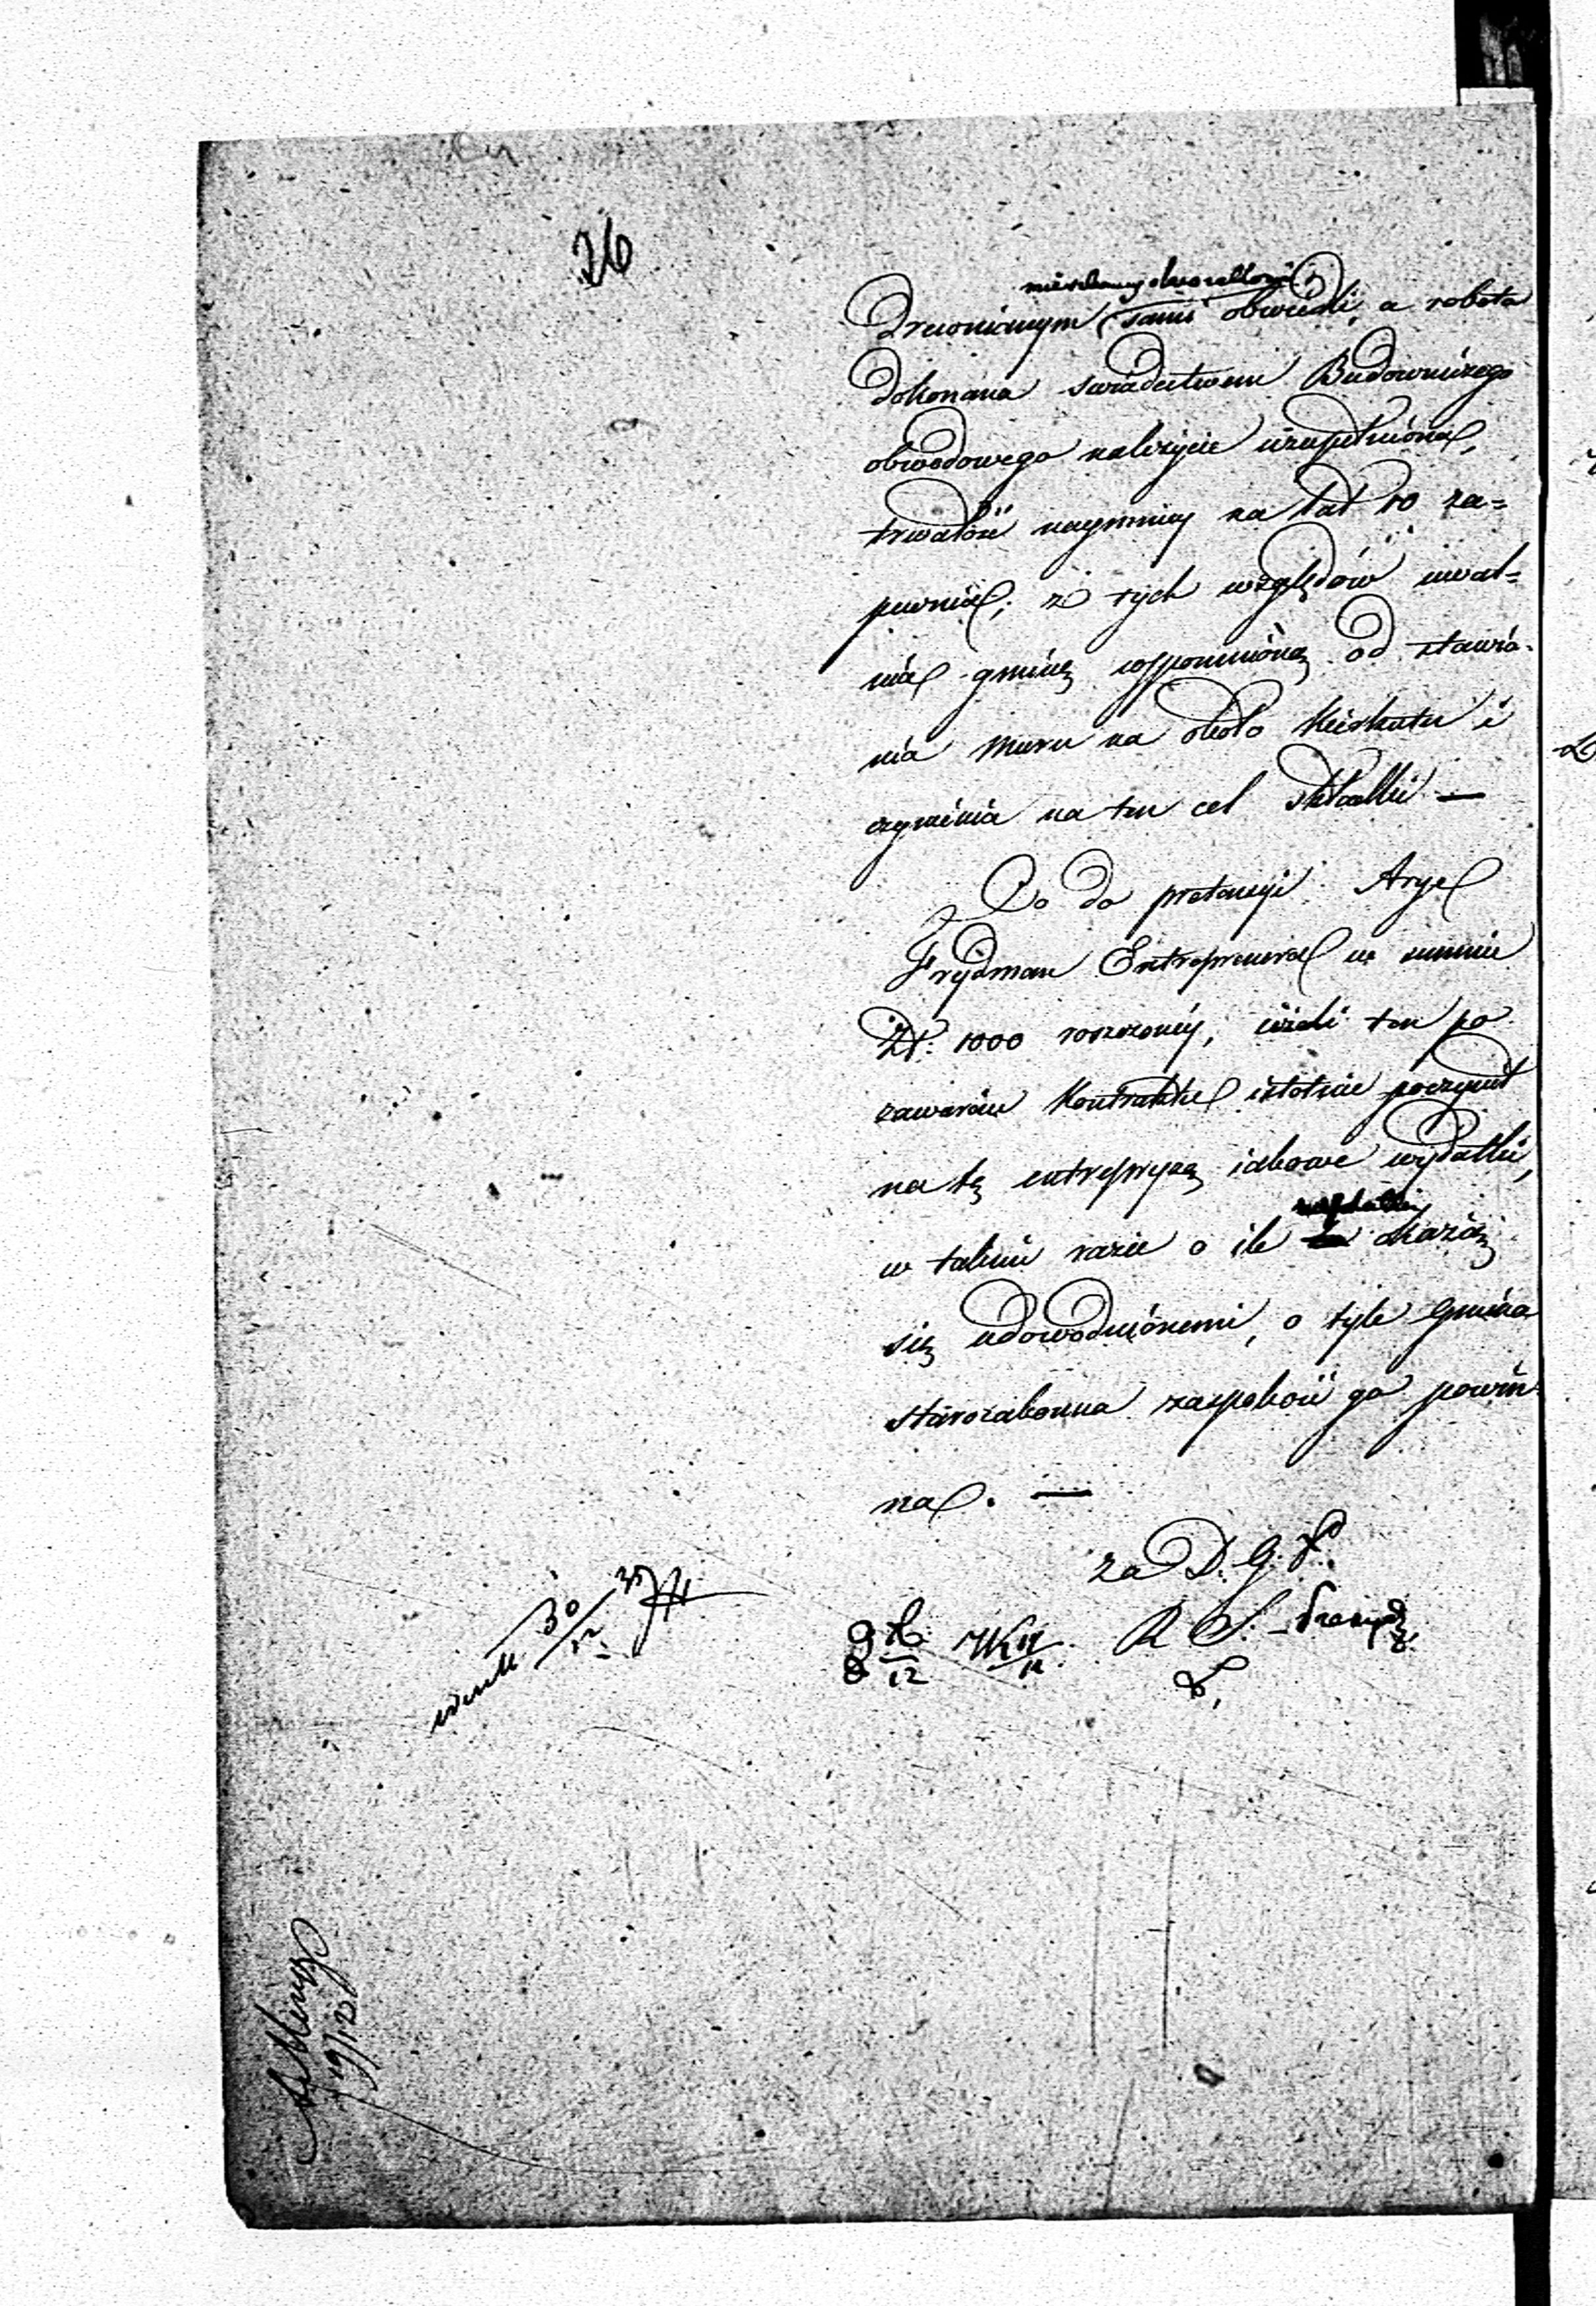 26
Drewnianym sami obwiedli, a robota
dokonana swiadectwem Budowniczego
obwodowego należycie uzupełniona,
trwałość naymniey na lat 10 za=
pewnia; z tych względów uwal=
nia gminę wspomnioną od stawia=
nia muru na około Kierkutu i
czynienia na ten cel składki —
Co do pretensyi Arye
Frydman Entreprenera w summie
Zł: 1000 roszczoney, ieżeli ten po
zawarciu Kontraktu istotnie poczynił
na tę entrepryzę iakowe wydatki,
wydatki
w takim razie o ile okażą
się udowodnionemi, o tyle Gmina
starozakonna zaspokoić go powin
na. —
za D. G. P.
R S.
30/12
19/12